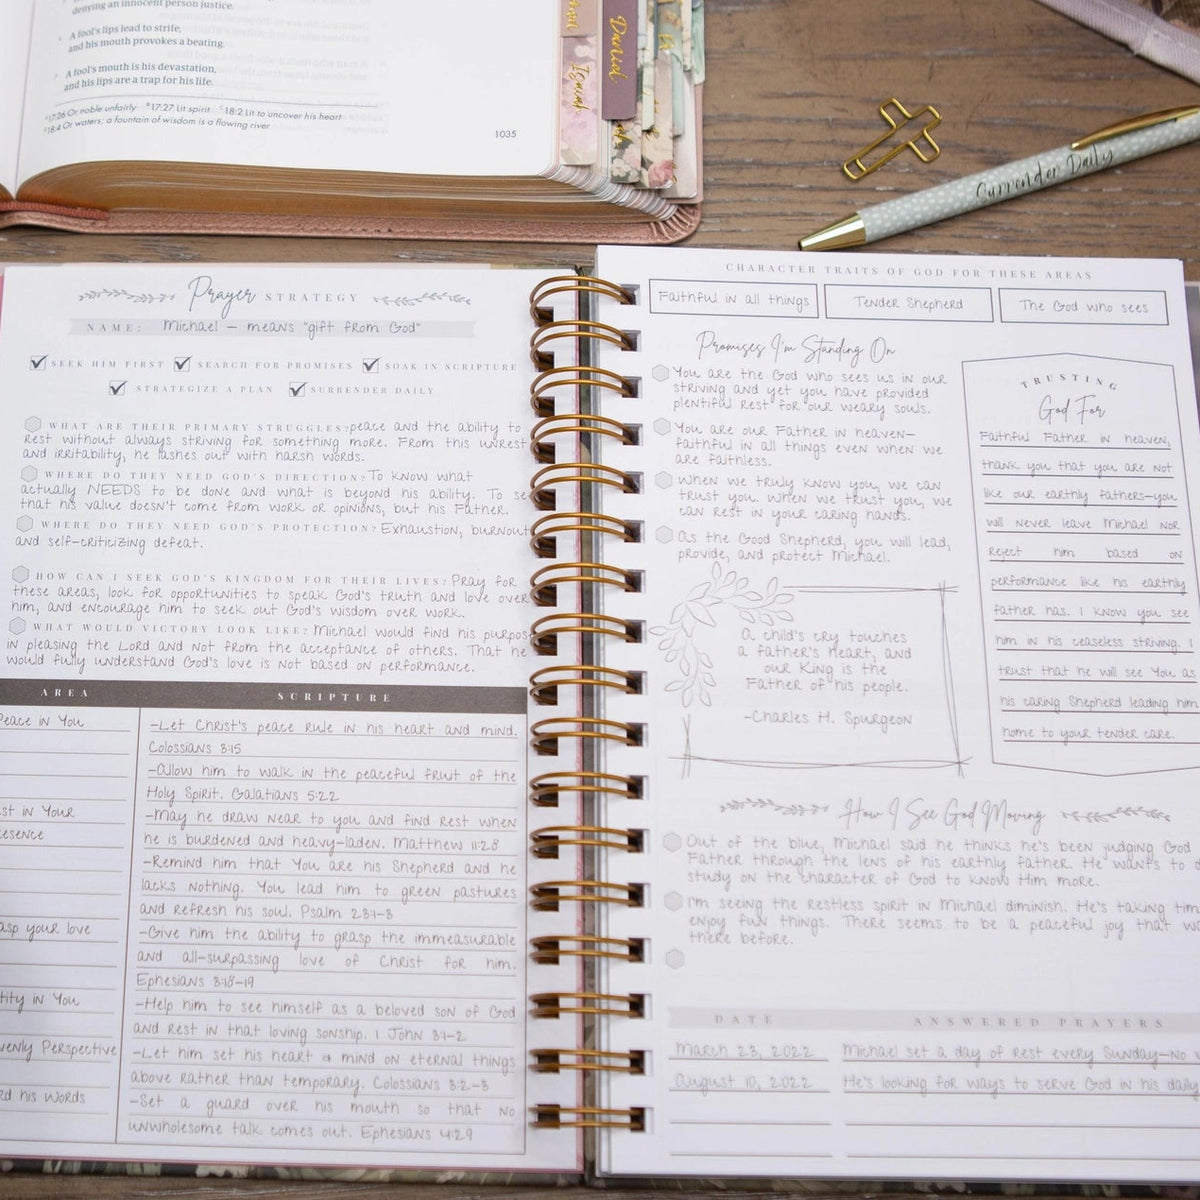 denying an innocent person justice.
A fool's lips lead to strife,
and his mouth provokes a beating.
A fool's mouth is his devastation,
and his lips are a trap for his life.
17:26 Or noble unfairly B17:27 Lit spirit C18:2 Lit to uncover his heart
18:4 Or waters; a fountain of wisdom is a flowing river
1035
Daniel
Isaiah
Surrender Daily
Prayer STRATEGY
NAME: Michael – means "gift from God"
SEEK HIM FIRST SEARCH FOR PROMISES SOAK IN SCRIPTURE
STRATEGIZE A PLAN SURRENDER DAILY
WHAT ARE THEIR PRIMARY STRUGGLES? peace and the ability to
rest without always striving for something more. From this unrest
and irritability, he lashes out with harsh words.
WHERE DO THEY NEED GOD'S DIRECTION? To know what
actually NEEDS to be done and what is beyond his ability. To se
that his value doesn't come from work or opinions, but his Father.
WHERE DO THEY NEED GOD'S PROTECTION? Exhaustion, burnout
and self-criticizing defeat.
HOW CAN I SEEK GOD'S KINGDOM FOR THEIR LIVES? Pray for
these areas, look for opportunities to speak God's truth and love over
him, and encourage him to seek out God's wisdom over work.
WHAT WOULD VICTORY LOOK LIKE? Michael would find his purpos
in pleasing the Lord and not from the acceptance of others. That he
would fully understand God's love is not based on performance.
AREA SCRIPTURE
Peace in You
-Let Christ's peace rule in his heart and mind.
Colossians 3:15
-Allow him to walk in the peaceful fruit of the
Holy Spirit. Galatians 5:22
st in Your
esence
-May he draw near to you and find rest when
he is burdened and heavy-laden. Matthew 11:28
-Remind him that You are his Shepherd and he
lacks nothing. You lead him to green pastures
and refresh his soul. Psalm 23:1-3
asp your love
-Give him the ability to grasp the immeasurable
and all-surpassing love of Christ for him.
Ephesians 3:18-19
tity in You
-Help him to see himself as a beloved son of God
and rest in that loving sonship. 1 John 3:1-2
venly Perspective
-Let him set his heart & mind on eternal things
above rather than temporary. Colossians 3:2-3
rd his words
-Set a guard over his mouth so that no
unwholesome talk comes out. Ephesians 4:29
CHARACTER TRAITS OF GOD FOR THESE AREAS
Faithful in all things Tender Shepherd The God who sees
Promises I'm Standing On
You are the God who sees us in our
striving and yet you have provided
plentiful rest for our weary souls.
You are our Father in heaven–
faithful in all things even when we
are faithless.
When we truly know you, we can
trust you. When we trust you, we
can rest in your caring hands.
As the Good Shepherd, you will lead,
provide, and protect Michael.
A child's cry touches
a father's heart, and
our King is the
Father of his people.
-Charles H. Spurgeon
TRUSTING
God For
Faithful Father in heaven,
thank you that you are not
like our earthly fathers–you
will never leave Michael nor
reject him based on
performance like his earthly
father has. I know you see
him in his ceaseless striving. I
trust that he will see You as
his caring Shepherd leading him
home to your tender care.
How I See God Moving
Out of the blue, Michael said he thinks he's been judging God
Father through the lens of his earthly father. He wants to d
study on the character of God to know Him more.
I'm seeing the restless spirit in Michael diminish. He's taking tim
enjoy fun things. There seems to be a peaceful joy that w
there before.
DATE ANSWERED PRAYERS
March 23, 2022 Michael set a day of rest every Sunday–no
August 10, 2022 He's looking for ways to serve God in his daily